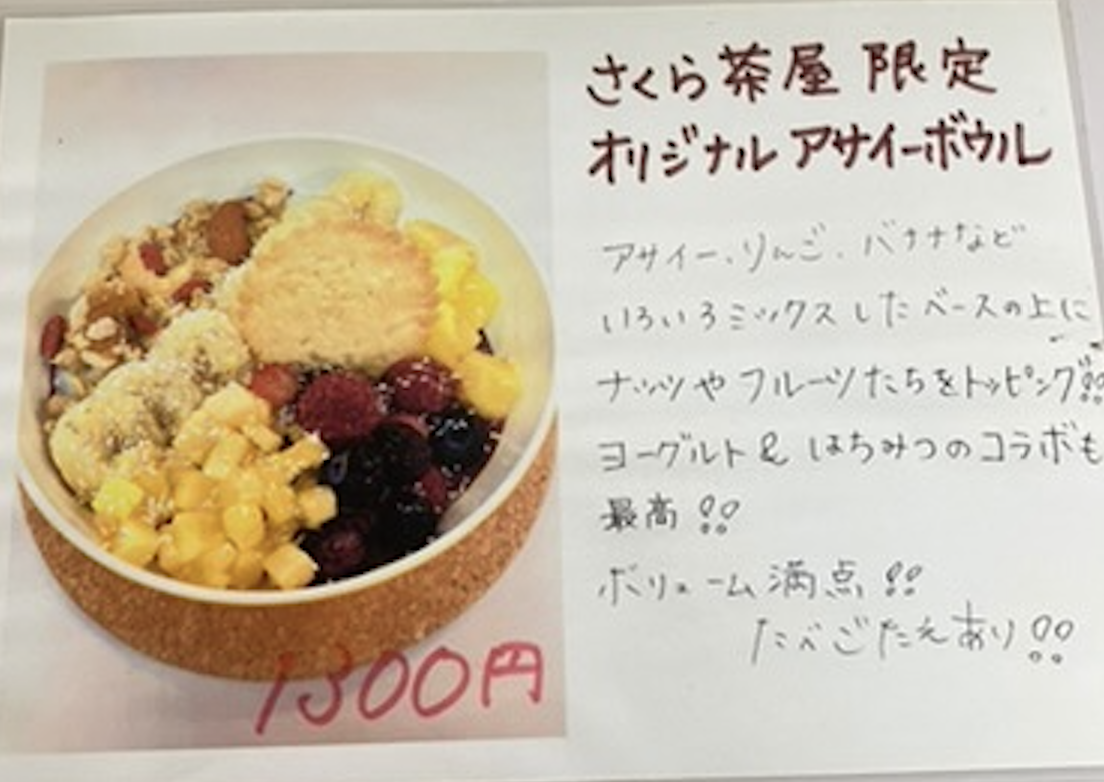 さくら茶屋 限定
オリジナル アサイーボウル
アサイー、りんご、バナナなど
いろいろミックスしたベースの上に
ナッツやフルーツたちをトッピング!!
ヨーグルト & はちみつのコラボも
最高!!
ボリューム満点!!
たべごたえあり!!
1300円